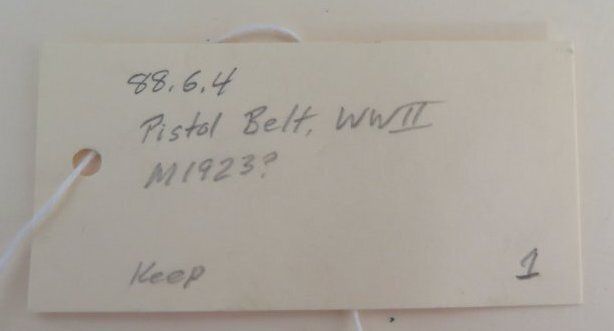 88.6.4
Pistol Belt, WWII
M1923?
Keep
1